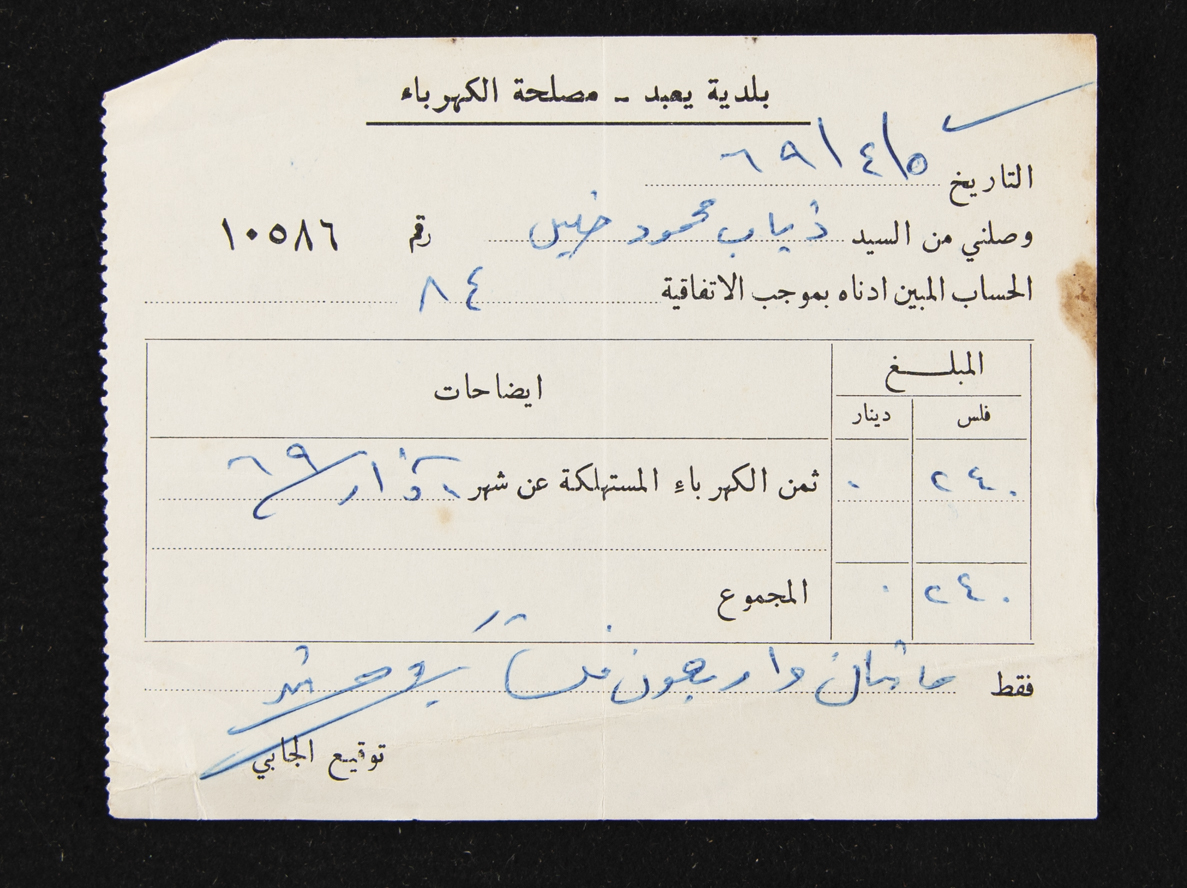 بلدية يعبد - مصلحة الكهرباء
التاريخ ٥/٤/٦٩
وصلني من السيد ذياب محمود خليل رقم ١٠٥٨٦
الحساب المبين ادناه بموجب الاتفاقية ٨٤
المبلغ ايضاحات
فلس دينار
٢٤٠ ٠ ثمن الكهرباء المستهلكة عن شهر آذار ٦٩
٢٤٠ ٠ المجموع
فقط مائتان واربعون فلسا
توقيع الجابي